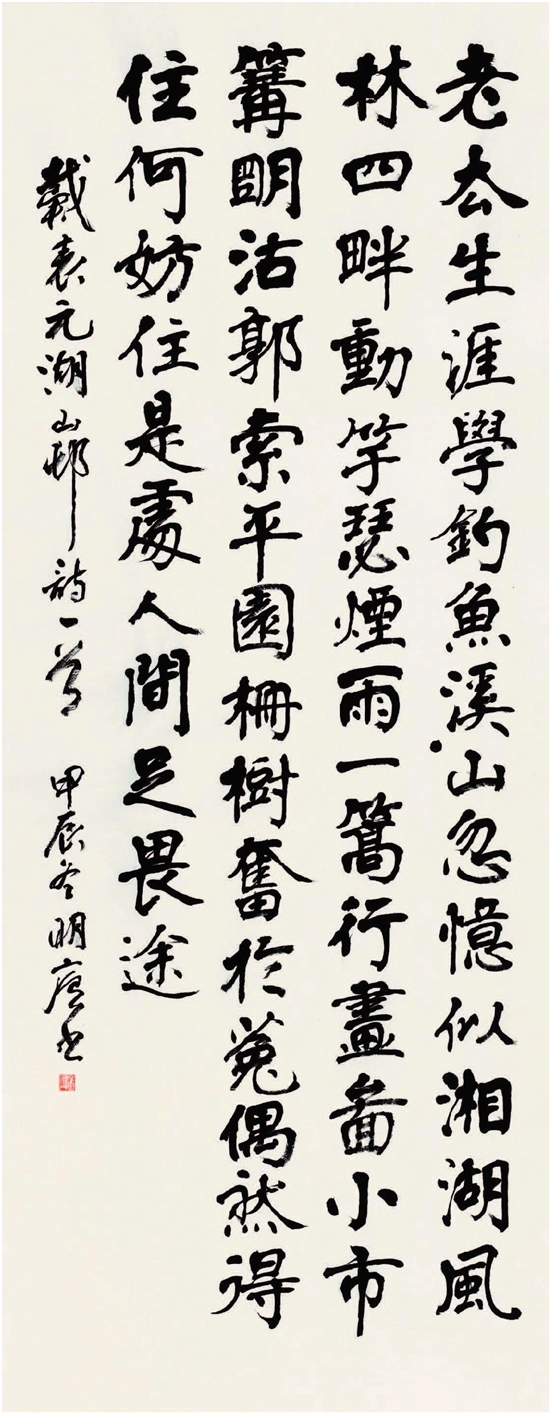 老厺生涯學釣魚溪山忽憶似湘湖風
林四畔動竽瑟煙雨一篙行畫啚小市
篝朙沽郭索平園柵樹奮於菟偶然得
住何妨住是處人間足畏途
戴表元湖山邨詩一首 甲辰冬明書